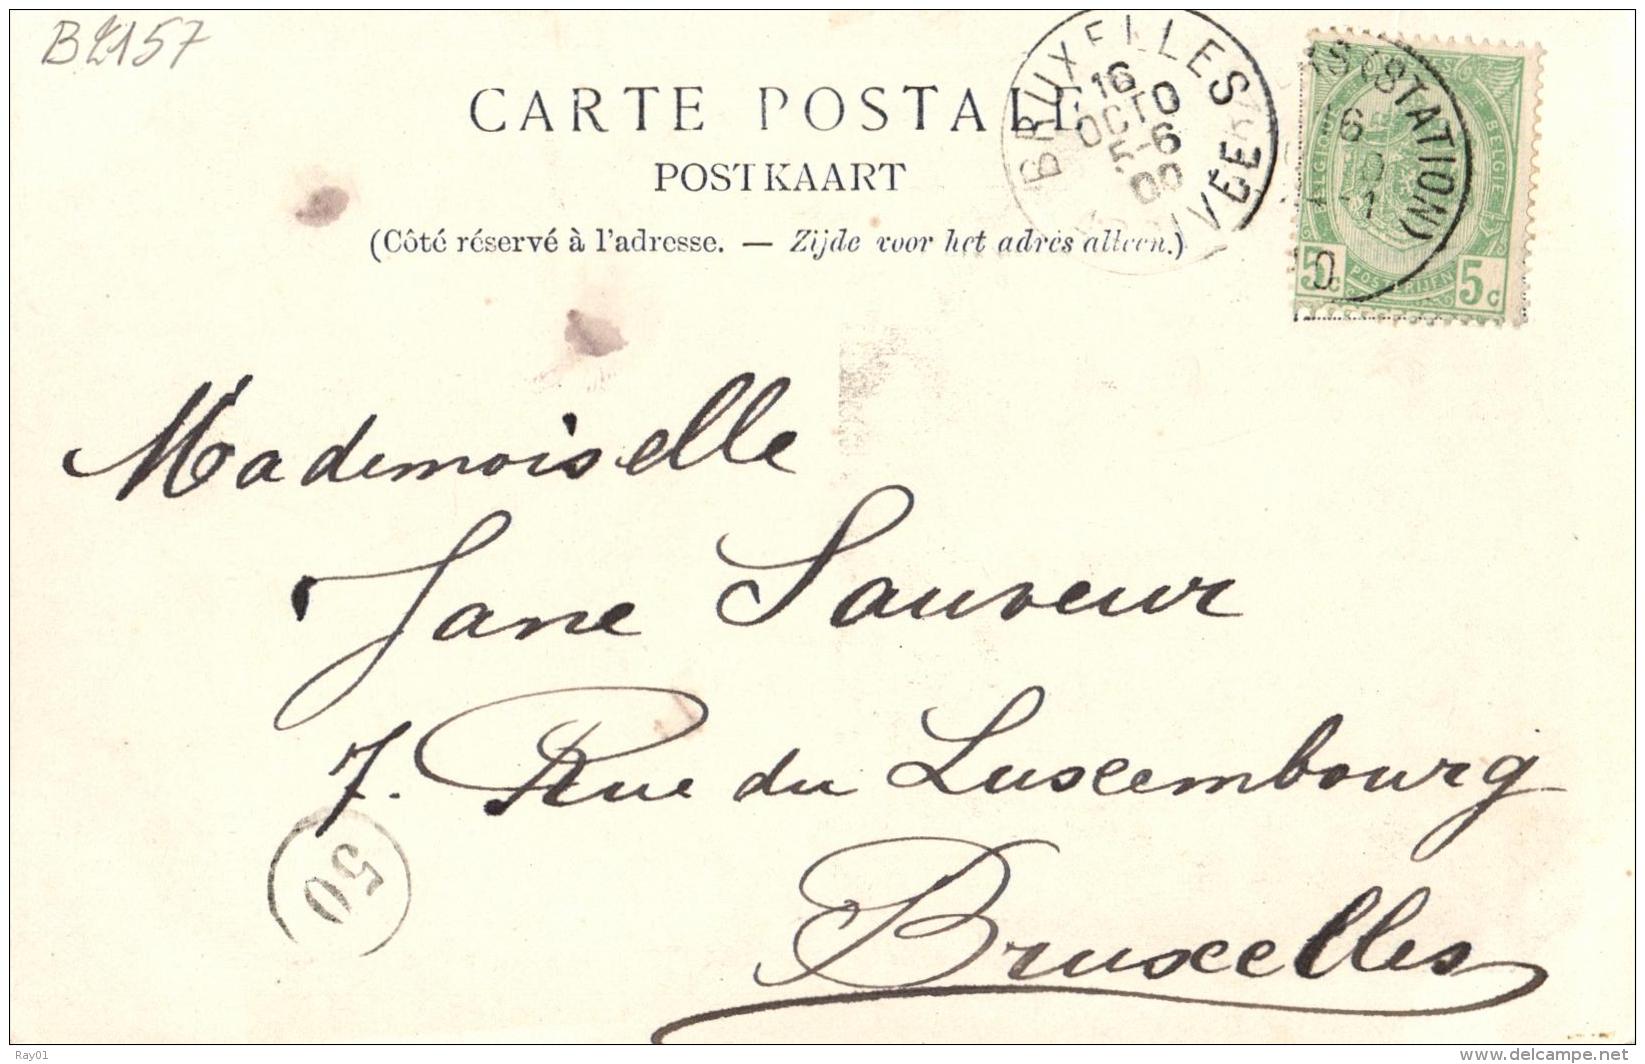 B2157
CARTE POSTALE
POSTKAART
(Côté réservé à l'adresse. — Zijde voor het adres alleen.)
BRUXELLES
16
OCTO
5-6
00
STATION)
BELGIE
5c
POSTERIJEN
5c
Mademoiselle
Jane Sauveur
7. Rue du Luxembourg
50
Bruxelles
Ray01
delcampe.net